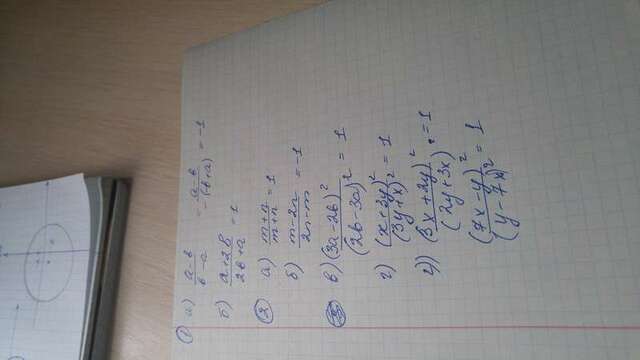 ① а) (a-b)/(b-a) = (a-b)/(-(-b+a)) = -1
б) (a+2b)/(2b+a) = 1
② а) (m+n)/(m+n) = 1
б) (m-2n)/(2n-m) = -1
в) (3a-2b)²/(2b-3a)² = 1
г) (x+3y)²/(3y+x)² = 1
г)) (3x+2y)²/(2y+3x)² = 1
(7x-y)²/(y-7x)² = 1